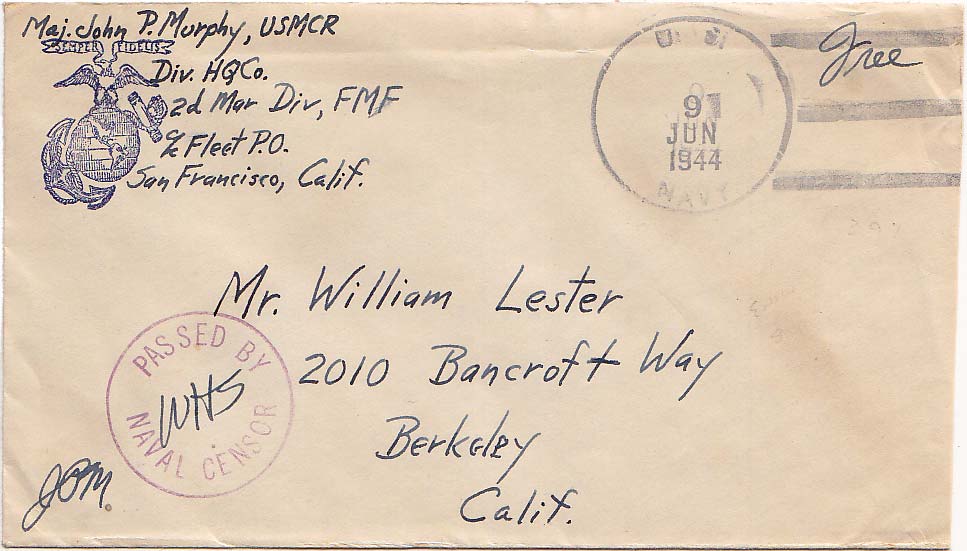 Maj. John P. Murphy, USMCR
SEMPER FIDELIS
Div. HQ Co.
2d Mar Div, FMF
℅ Fleet P.O.
San Francisco, Calif.
U. S.
9
JUN
1944
NAVY
Free
Mr. William Lester
2010 Bancroft Way
Berkeley
Calif.
PASSED BY
WHS
NAVAL CENSOR
JPM.